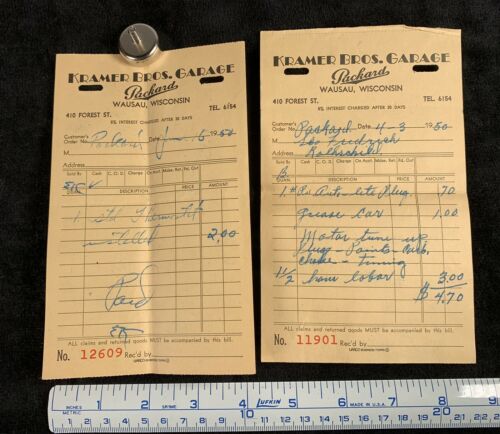 KRAMER BROS. GARAGE
Packard
WAUSAU, WISCONSIN
410 FOREST ST. TEL. 6154
INTEREST CHARGED AFTER 30 DAYS
Customer's
Order No. Date 16 1950
M
Address
Sold By Cash C. O. D. Charge On Acct. Mdse. Ret. Pd. Out
DESCRIPTION PRICE AMOUNT
1
installed 2.00
Paid
ALL claims and returned goods MUST be accompanied by this bill.
No. 12609 Rec'd by
KRAMER BROS. GARAGE
Packard
WAUSAU, WISCONSIN
410 FOREST ST. TEL. 6154
INTEREST CHARGED AFTER 30 DAYS
Customer's
Order No. Packard Date 4-3 1950
M
Address Rothschild
Sold By Cash C. O. D. Charge On Acct. Mdse. Ret. Pd. Out
QUAN. DESCRIPTION PRICE AMOUNT
1 Auto-lite Plug .70
Grease Car 1.00
Motor tune up
Plugs - Points - Carb.
Choke - timing
1 1/2 hour labor 3.00
$ 4.70
ALL claims and returned goods MUST be accompanied by this bill.
No. 11901 Rec'd by
INCHES 1 2 3 4 LUFKIN 5 6 MADE IN U.S.A. 7 8 9
METRIC 10 20